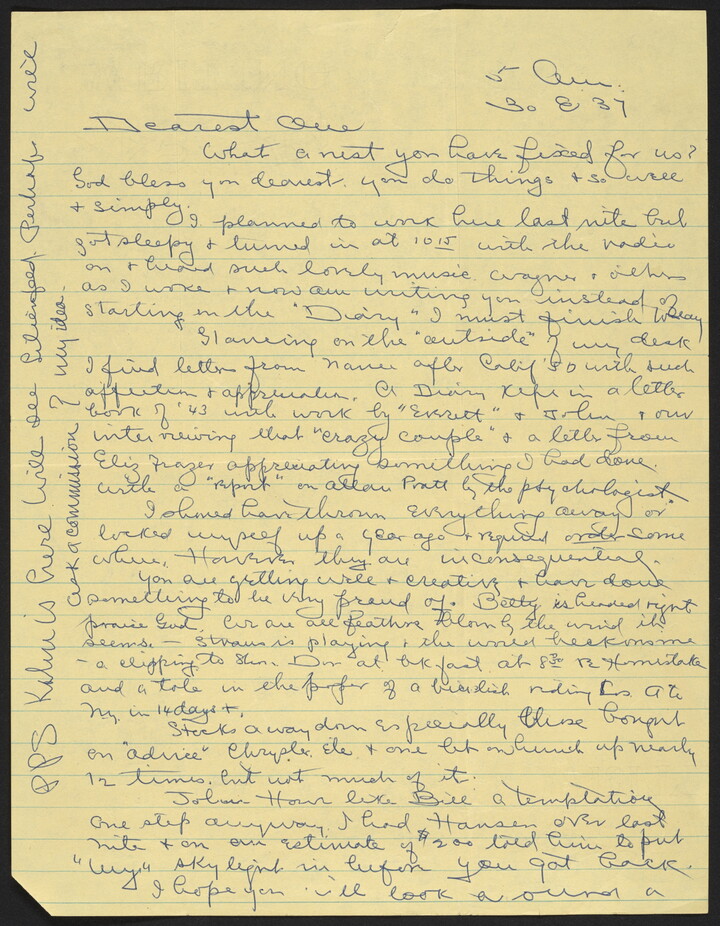 5 Am.
30 E 37
Dearest One
What a nest you have fixed for us?
God bless you dearest. you do things + so well
+ simply.
I planned to work here last nite but
got sleepy + turned in at 10 15 with the radio
on + heard such lovely music wagner + others
as I woke + now am writing you instead of
starting on the "Diary" I must finish today
Glancing on the "outside" of my desk
I find letters from after Calif '30 with such
affection + appreciation. A Diary kept in a letter
book of '43 with work by "Everett" + John + our
interviewing that "crazy couple" + a letter from
Eliz Frazer appreciating something I had done.
with a "report" on Allan Pratt by the psychologist.
I should have thrown everything away or
locked myself up a year ago + required order some
where. However they are inconsequential.
You are getting well + creative + have done
something to be very proud of. Betty is headed right
praise God. We are all feathers blown by the wind it
seems. — Straus is playing + the world
– a clipping to Don at bkfast at 8 30
and a tale in the paper of a riding Los A to
Ny. in 14 days +.
Stocks away down especially those bought
on "advice" Chrysler, + one bot on hunch up nearly
12 times. but not much of it.
like Bill a temptation
one step anyway. I had Hansen over last
nite + on an estimate of $200 told him to put
"my" skylight in before you got back.
I hope you will look around a
PPS Kahn is here. Will see Perhaps we'll
ask a commission? my idea.